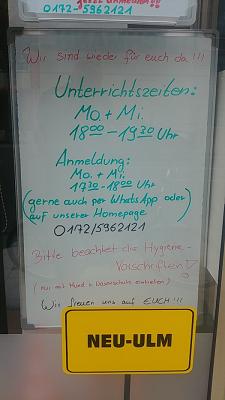 jetzt anmelden!!!
0172-5962121
Wir sind wieder für euch da !!!
Unterrichtszeiten:
Mo. + Mi.
18 00 - 19 30 Uhr
Anmeldung:
Mo. + Mi.
17 30 - 18 00 Uhr
(gerne auch per WhatsApp oder
auf unserer Homepage)
0172/5962121
Bitte beachtet die Hygiene-
Vorschriften
(nur mit Mund & Nasenschutz eintreten)
Wir freuen uns auf EUCH !!!
NEU-ULM